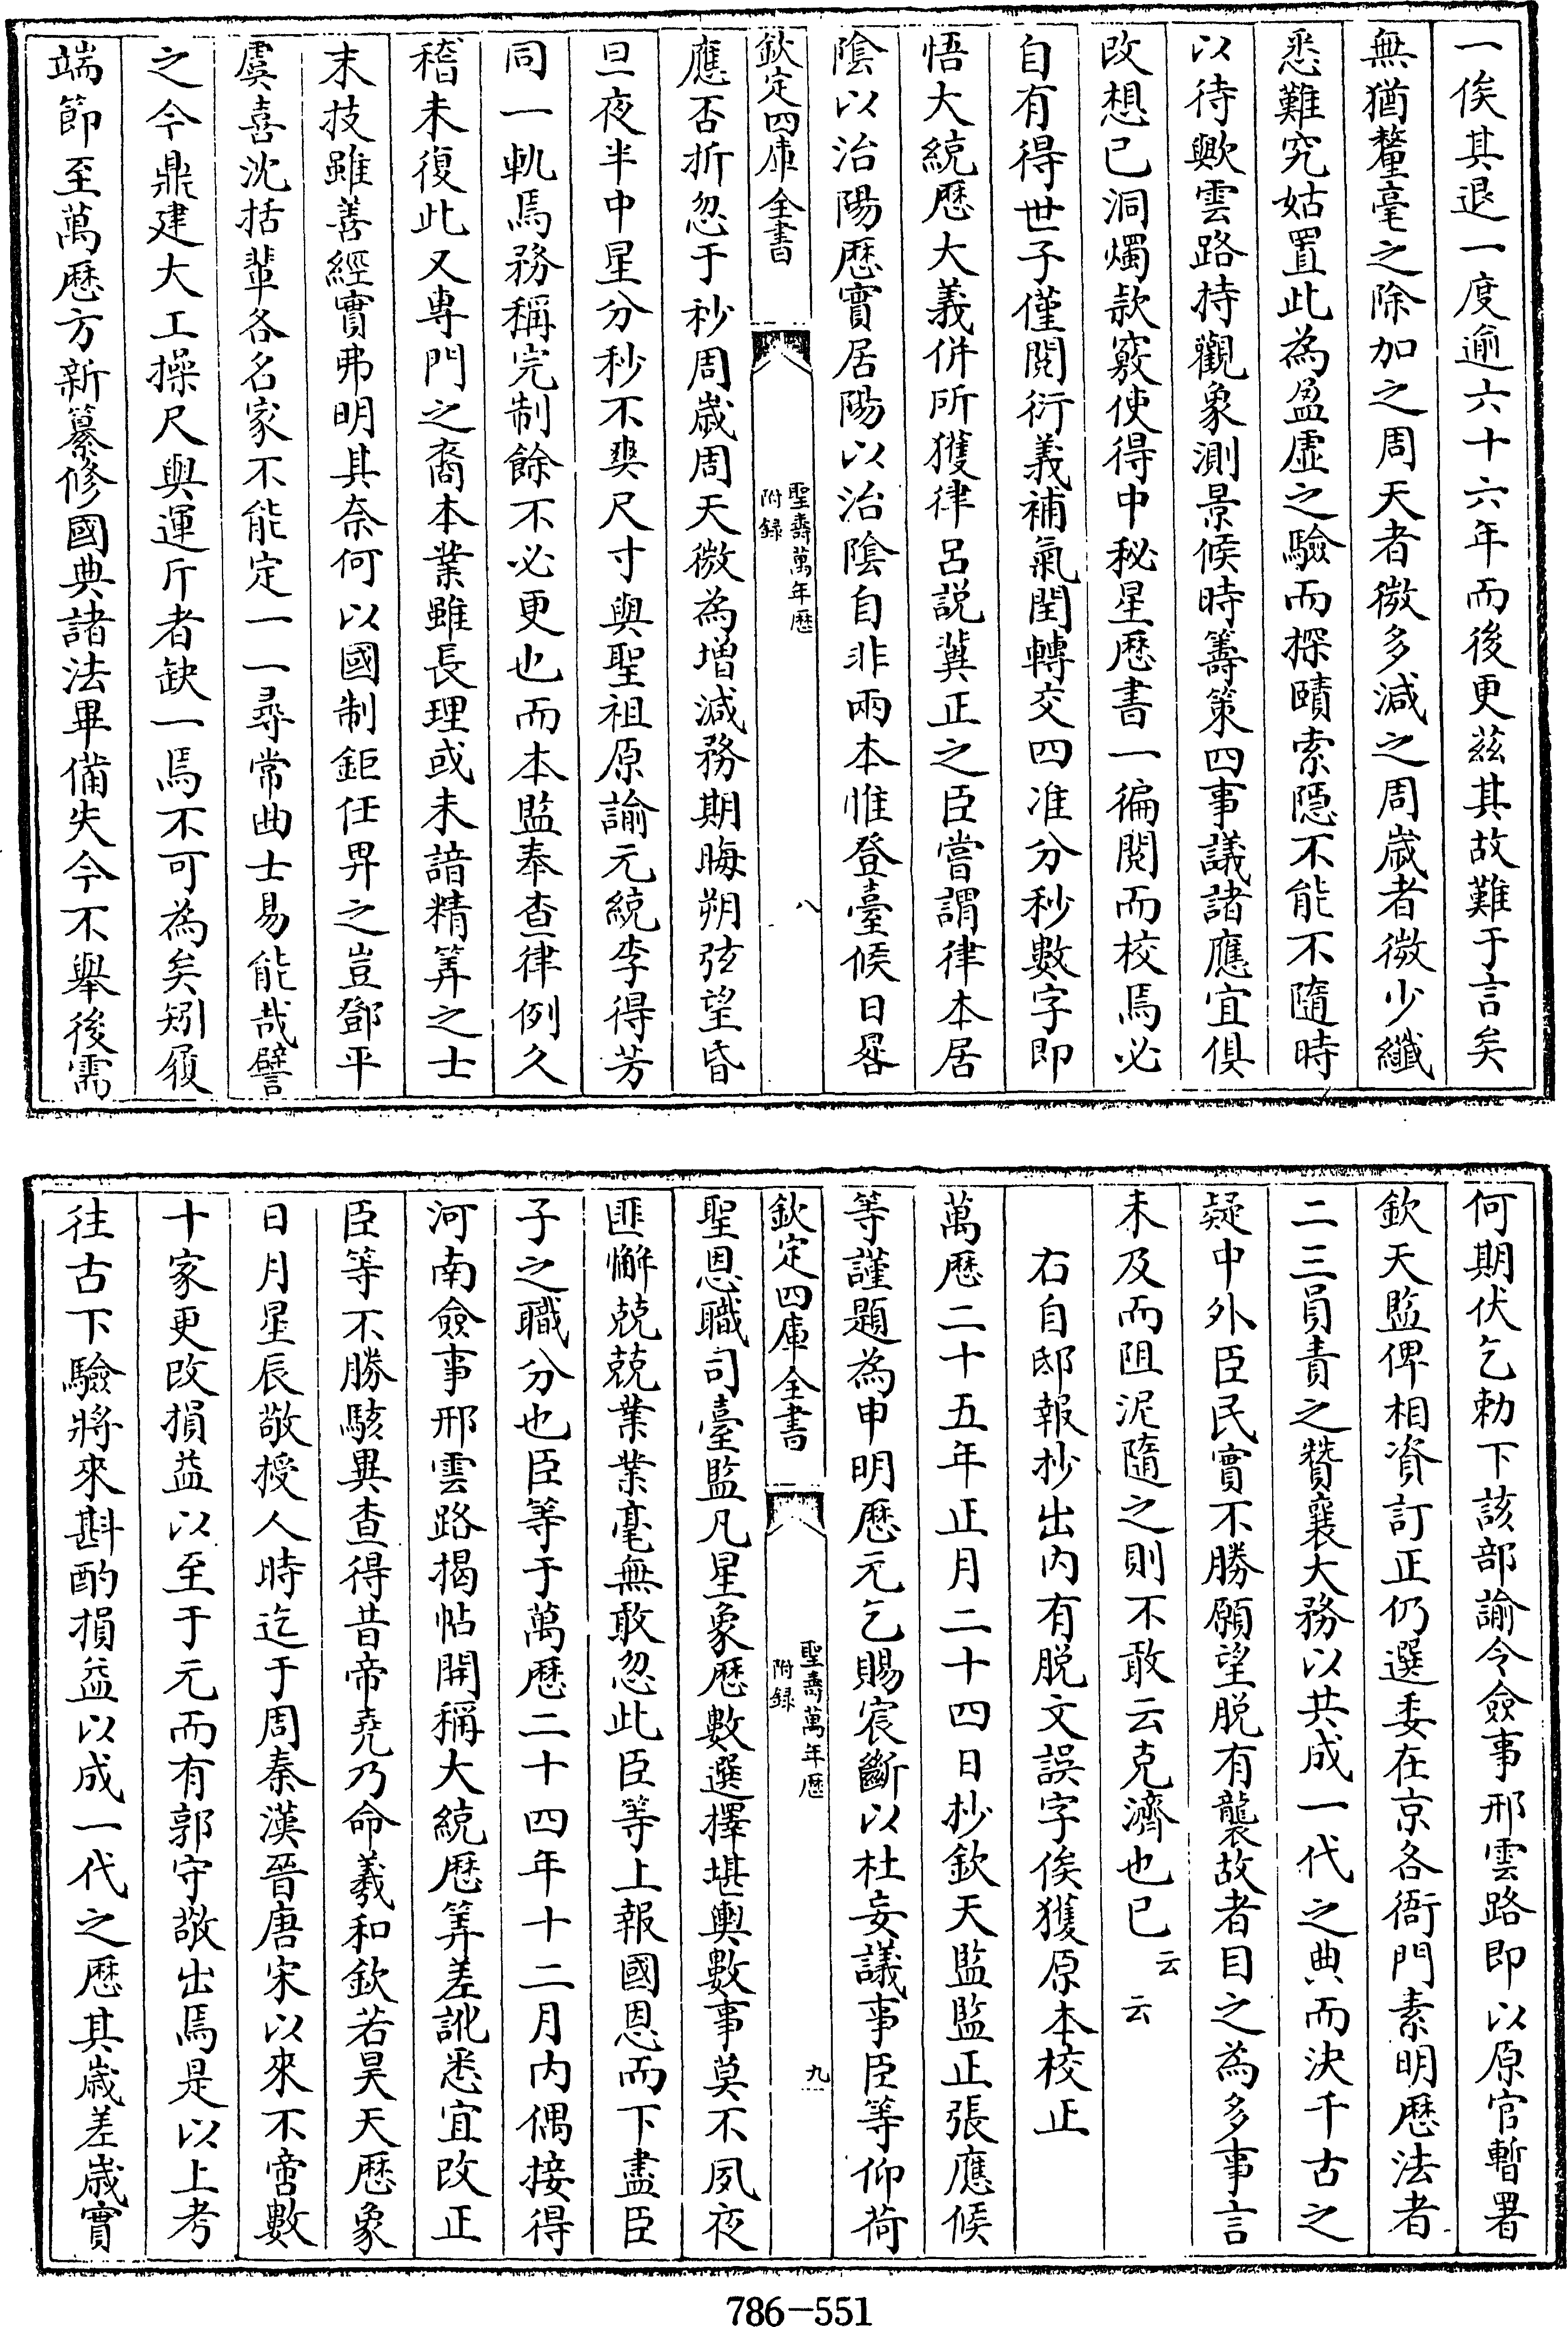 一俟其退一度逾六十六年而後更茲其故難于言矣
無猶釐毫之除加之周天者微多減之周歲者微少纖
悉難究姑置此為盈虛之驗而探賾索隱不能不隨時
以待歟雲路持觀象測景候時籌策四事議諸應宜俱
改想已洞燭款竅使得中秘星歷書一徧閱而校焉必
自有得世子僅閱衍義補氣閏轉交四准分秒數字即
悟大統歷大義併所獲律呂説冀正之臣嘗謂律本居
陰以治陽歷實居陽以治陰自非兩本惟登臺候日晷
欽定四庫全書
聖壽萬年歷
附録
八
應否折忽于秒周歲周天微為增減務期晦朔弦望昏
旦夜半中星分秒不爽尺寸與聖祖原諭元統李得芳
同一軌焉務稱完制餘不必更也而本監奉查律例久
稽未復此又專門之裔本業雖長理或未諳精筭之士
末技雖善經實弗明其奈何以國制鉅任畀之豈鄧平
虞喜沈括輩各名家不能定一一尋常曲士易能哉譬
之今鼎建大工操尺與運斤者缺一焉不可為矣矧履
端節至萬歷方新纂修國典諸法畢備失今不舉後需
何期伏乞勅下該部諭令僉事邢雲路即以原官暫署
欽天監俾相資訂正仍選委在京各衙門素明歷法者
二三員責之贊襄大務以共成一代之典而決千古之
疑中外臣民實不勝願望脱有襲故者目之為多事言
未及而阻泥隨之則不敢云克濟也已云云
右自邸報抄出内有脱文誤字俟獲原本校正
萬歷二十五年正月二十四日抄欽天監監正張應候
等謹題為申明歷元乞賜宸斷以杜妄議事臣等仰荷
欽定四庫全書
聖壽萬年歷
附録
九
聖恩職司臺監凡星象歷數選擇堪輿數事莫不夙夜
匪懈兢兢業業毫無敢忽此臣等上報國恩而下盡臣
子之職分也臣等于萬歷二十四年十二月内偶接得
河南僉事邢雲路揭帖開稱大統歷筭差訛悉宜改正
臣等不勝駭異查得昔帝堯乃命羲和欽若昊天歷象
日月星辰敬授人時迄于周秦漢晉唐宋以來不啻數
十家更改損益以至于元而有郭守敬出焉是以上考
往古下驗將來斟酌損益以成一代之歷其歲差歲實
786-551